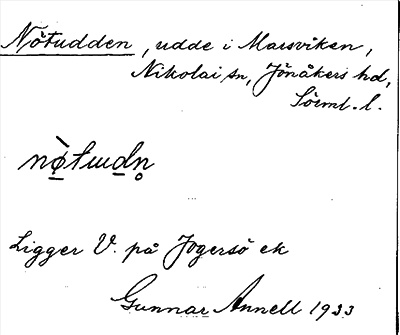 Nötudden, udde i Marsviken,
Nikolai sn, Jönåkers hd,
Sörml. l.
nø̀tɯdn̥
Ligger V. på Jogersö ek
Gunnar Annell 1933